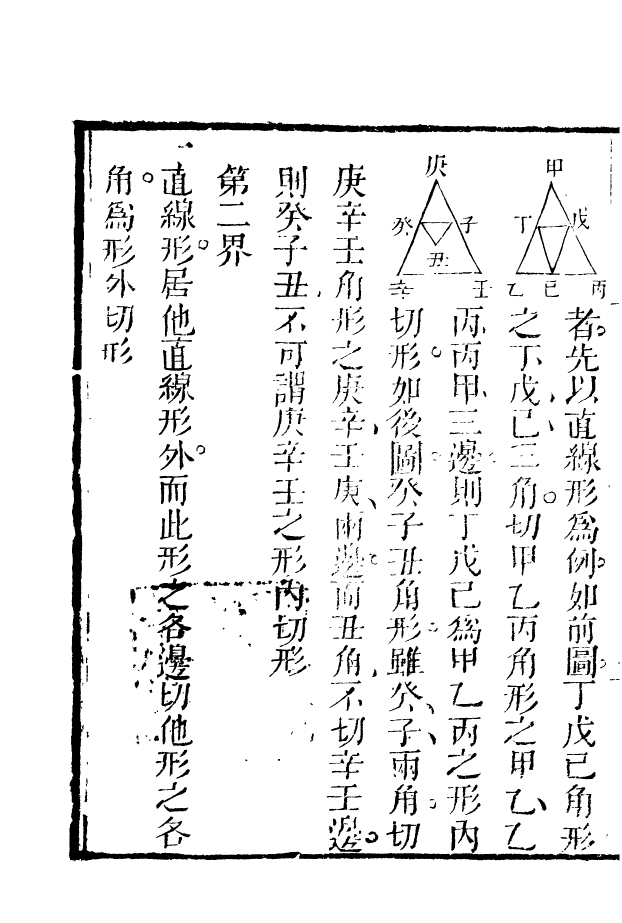 甲
丁 戊
乙 己 丙
庚
癸 子
丑
辛 壬
者。先以直線形爲例。如前圖。丁戊己角形
之丁、戊、己三角。切甲乙丙角形之甲乙、乙
丙、丙甲、三邊。則丁戊己爲甲乙丙之形內
切形。如後圖。癸子丑角形。雖癸、子、兩角。切
庚辛壬角形之庚辛、壬庚、兩邊。而丑角、不切辛壬邊。
則癸子丑、不可謂庚辛壬之形內切形
第二界
一直線形。居他直線形外。而此形之各邊切他形之各
角。爲形外切形